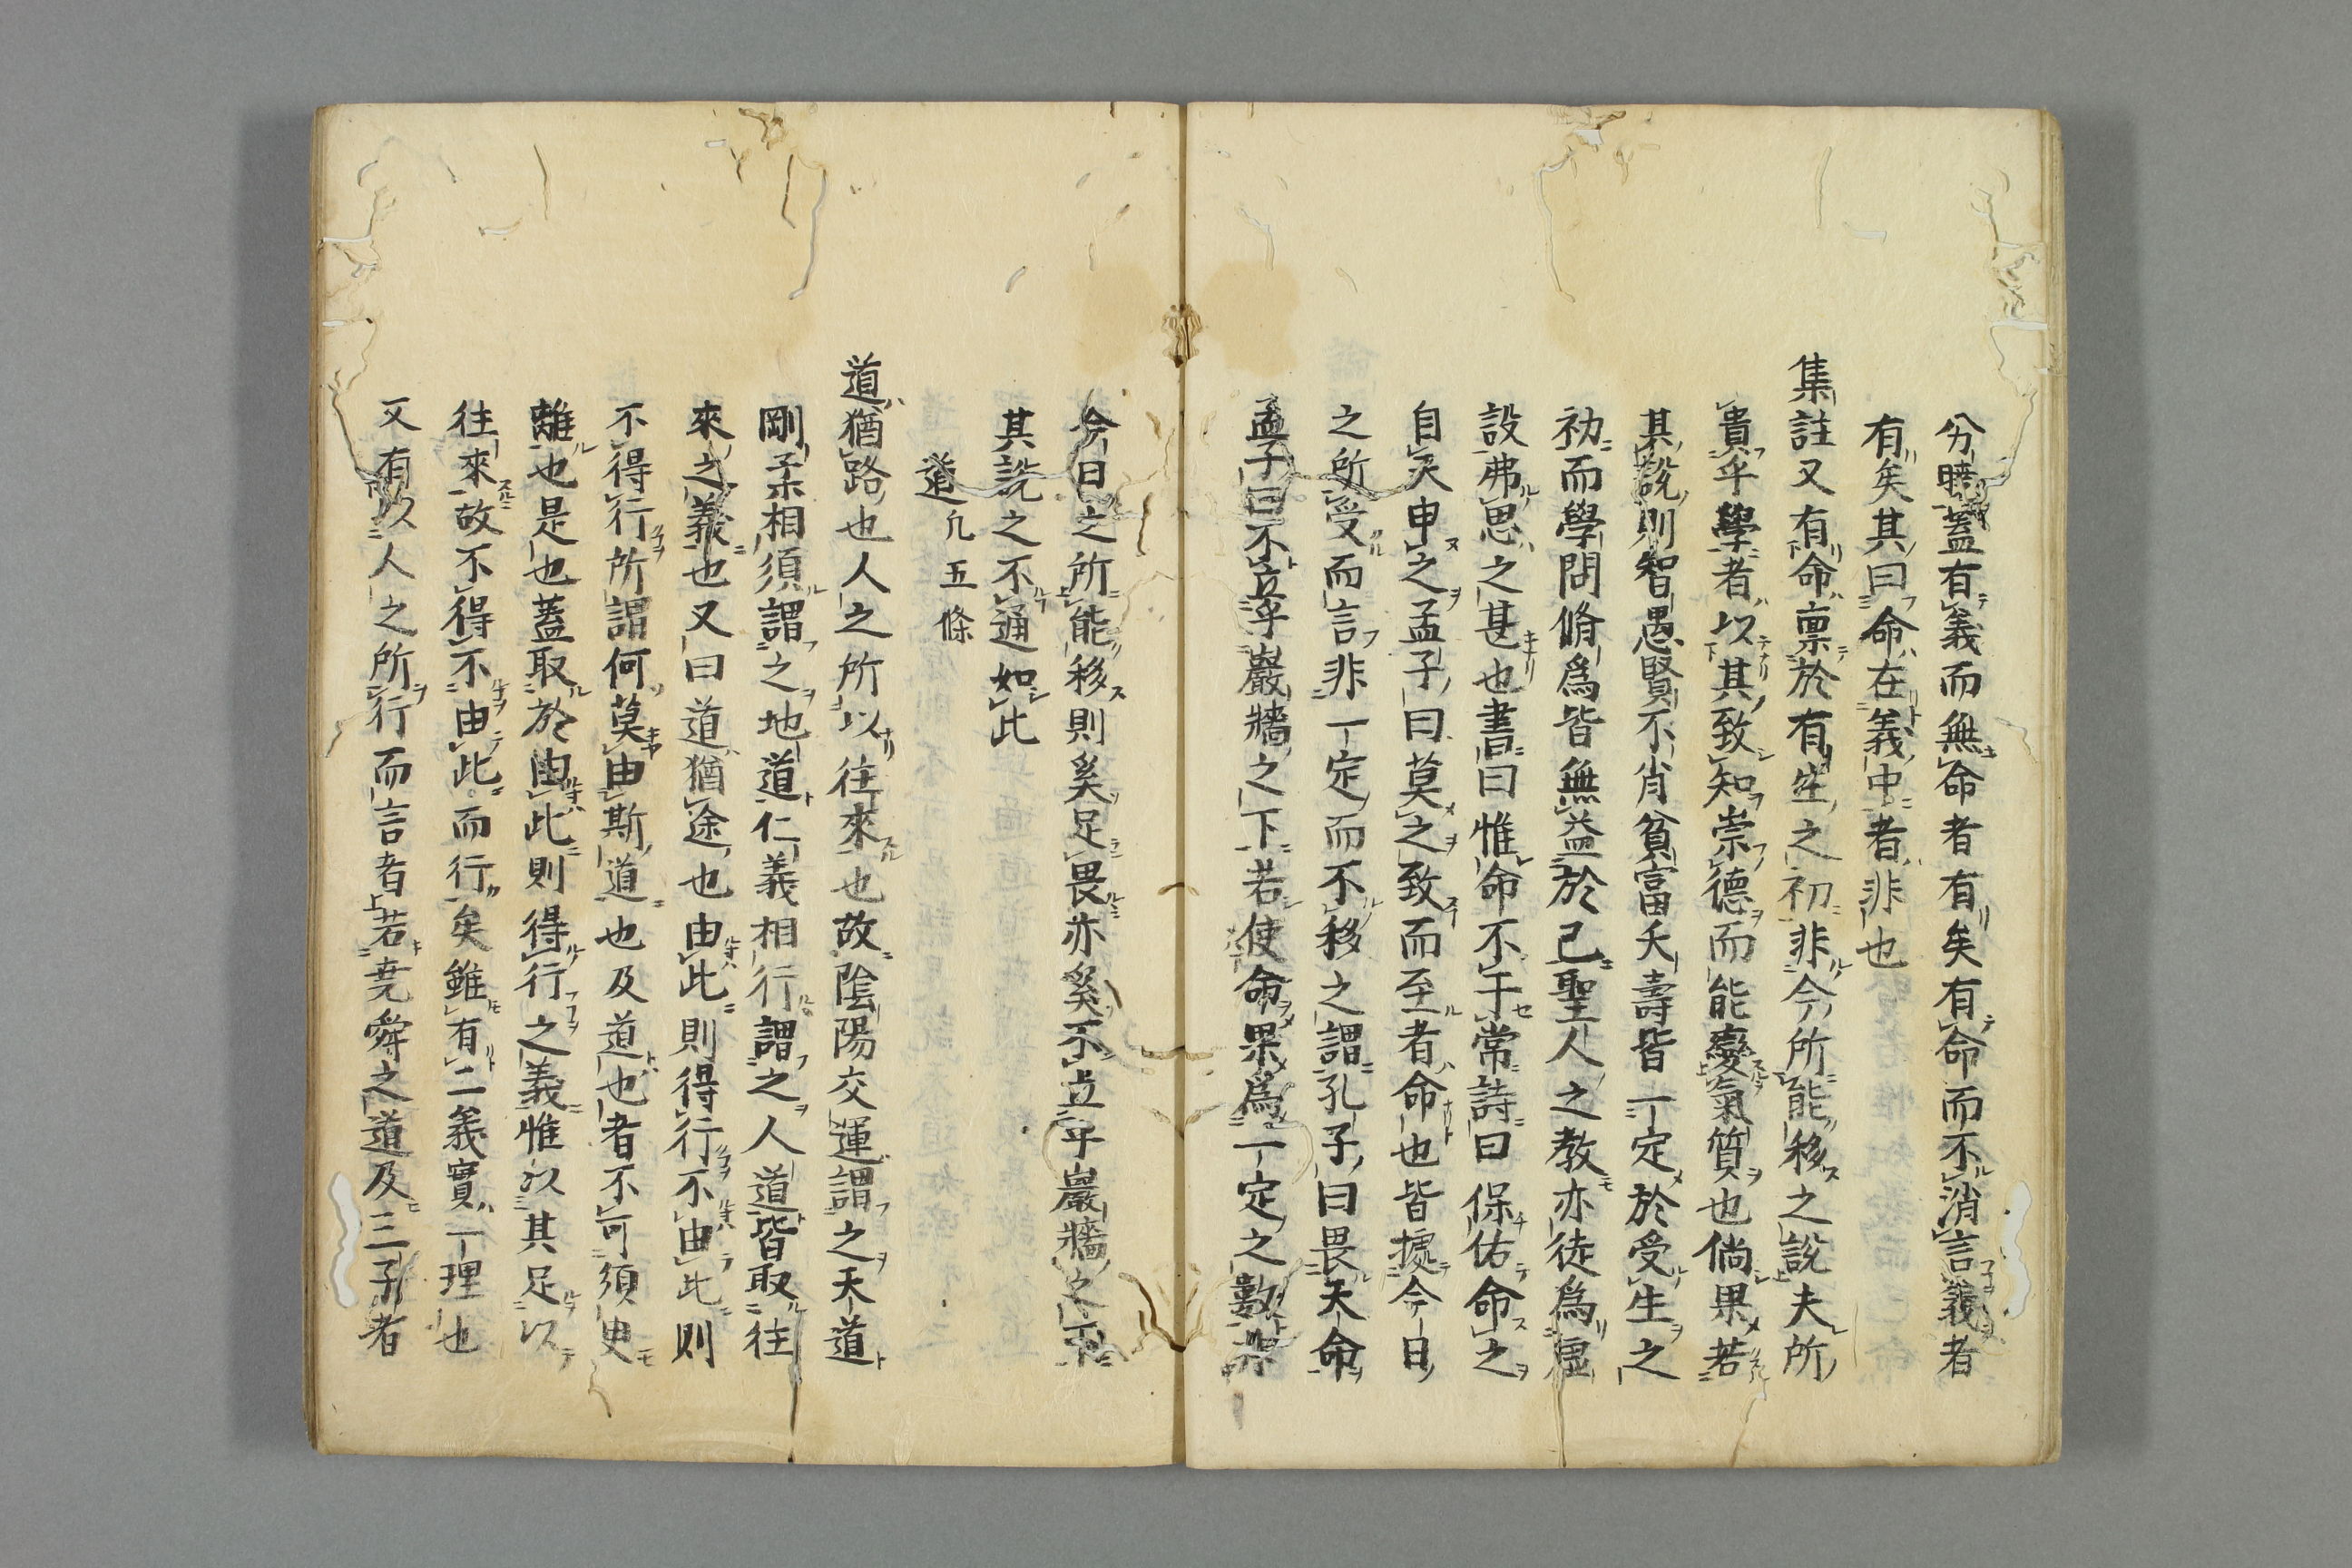 分曉蓋有義而無命者有矣有命而不消言義者
有矣其曰命在義中者非也
集註又有命稟於有生之初非今所能移之說夫所
貴乎學者以其致知崇德而能變氣質也倘果若
其說則智愚賢不肖貧富夭壽皆一定於受生之
初而學問脩爲皆無益於己聖人之教亦徒爲虛
設弗思之甚也書曰惟命不于常詩曰保佑命之
自天申之孟子曰莫之致而至者命也皆據今日
之所受而言非一定而不移之謂孔子曰畏天命
孟子曰不立乎巖牆之下若使命果爲一定之數非
今日之所能移則奚足畏亦奚不立乎巖牆之下
其說之不通如此
道 凡五條
道猶路也人之所以往來也故陰陽交運謂之天道
剛柔相須謂之地道仁義相行謂之人道皆取往
來之義也又曰道猶途也由此則得行不由此則
不得行所謂何莫由斯道也及道也者不可須臾
離也是也蓋取於由此則得行之義惟以其足以
往來故不得不由此而行矣雖有二義實一理也
又有以人之所行而言者若堯舜之道及三子者